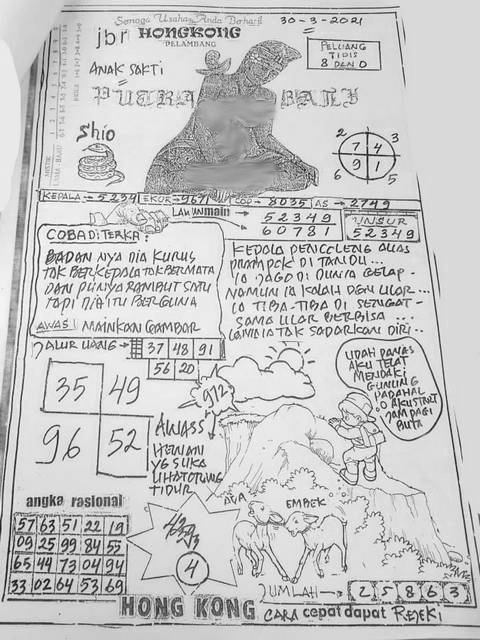 Semoga Usaha Anda Berhasil
30-3-2021
jbr HONGKONG
PELAMBANG
PELUANG
TIDIS
8 DAN 0
ANAK SAKTI
=
PUTRA BALI
Shio
2 3
7 4
9 1
6 5
KEPALA → 5234 EKOR → 9671 COP → 8035 AS → 2749
LAWAN main → 52349
60781
UNSUR
52349
COBA DITERKA:
BADAN NYA DIA KURUS
TAK BERKEPALA TAK BERMATA
DAN PUNYA RAMBUT SATU
TAPI DIA ITU BERGUNA
AWAS! MAINKAN GAMBAR
KEPALA PENCCLENG ALIAS
PRAMPOK DI TANDU...
IA JAGO DI DUNIA GELAP -
NAMUN IA KALAH DGN ULAR...
IA TIBA-TIBA DI SENGAT -
SAMA ULAR BERBISA...
JALUR UANG → 37 48 91
56 20
35 49
96 52
912
UDAH PANAS
AKU TELAT
MENDAKI
GUNUNG
PADAHAL
AKU START
JAM PAGI
BUTA
AWASS
HEWAN
YG SUKA
TIDUR
angka rasional
57 63 51 22 19
09 25 99 84 55
65 44 73 04 94
33 02 64 53 69
4
EMBEK
JUMLAH → 2 5 8 6 3
HONG KONG CARA cepat dapat REJEKI